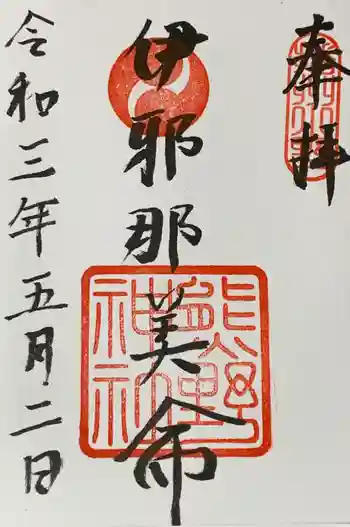 奉拝
伊邪那美命
熊野
神社
令和三年五月二日